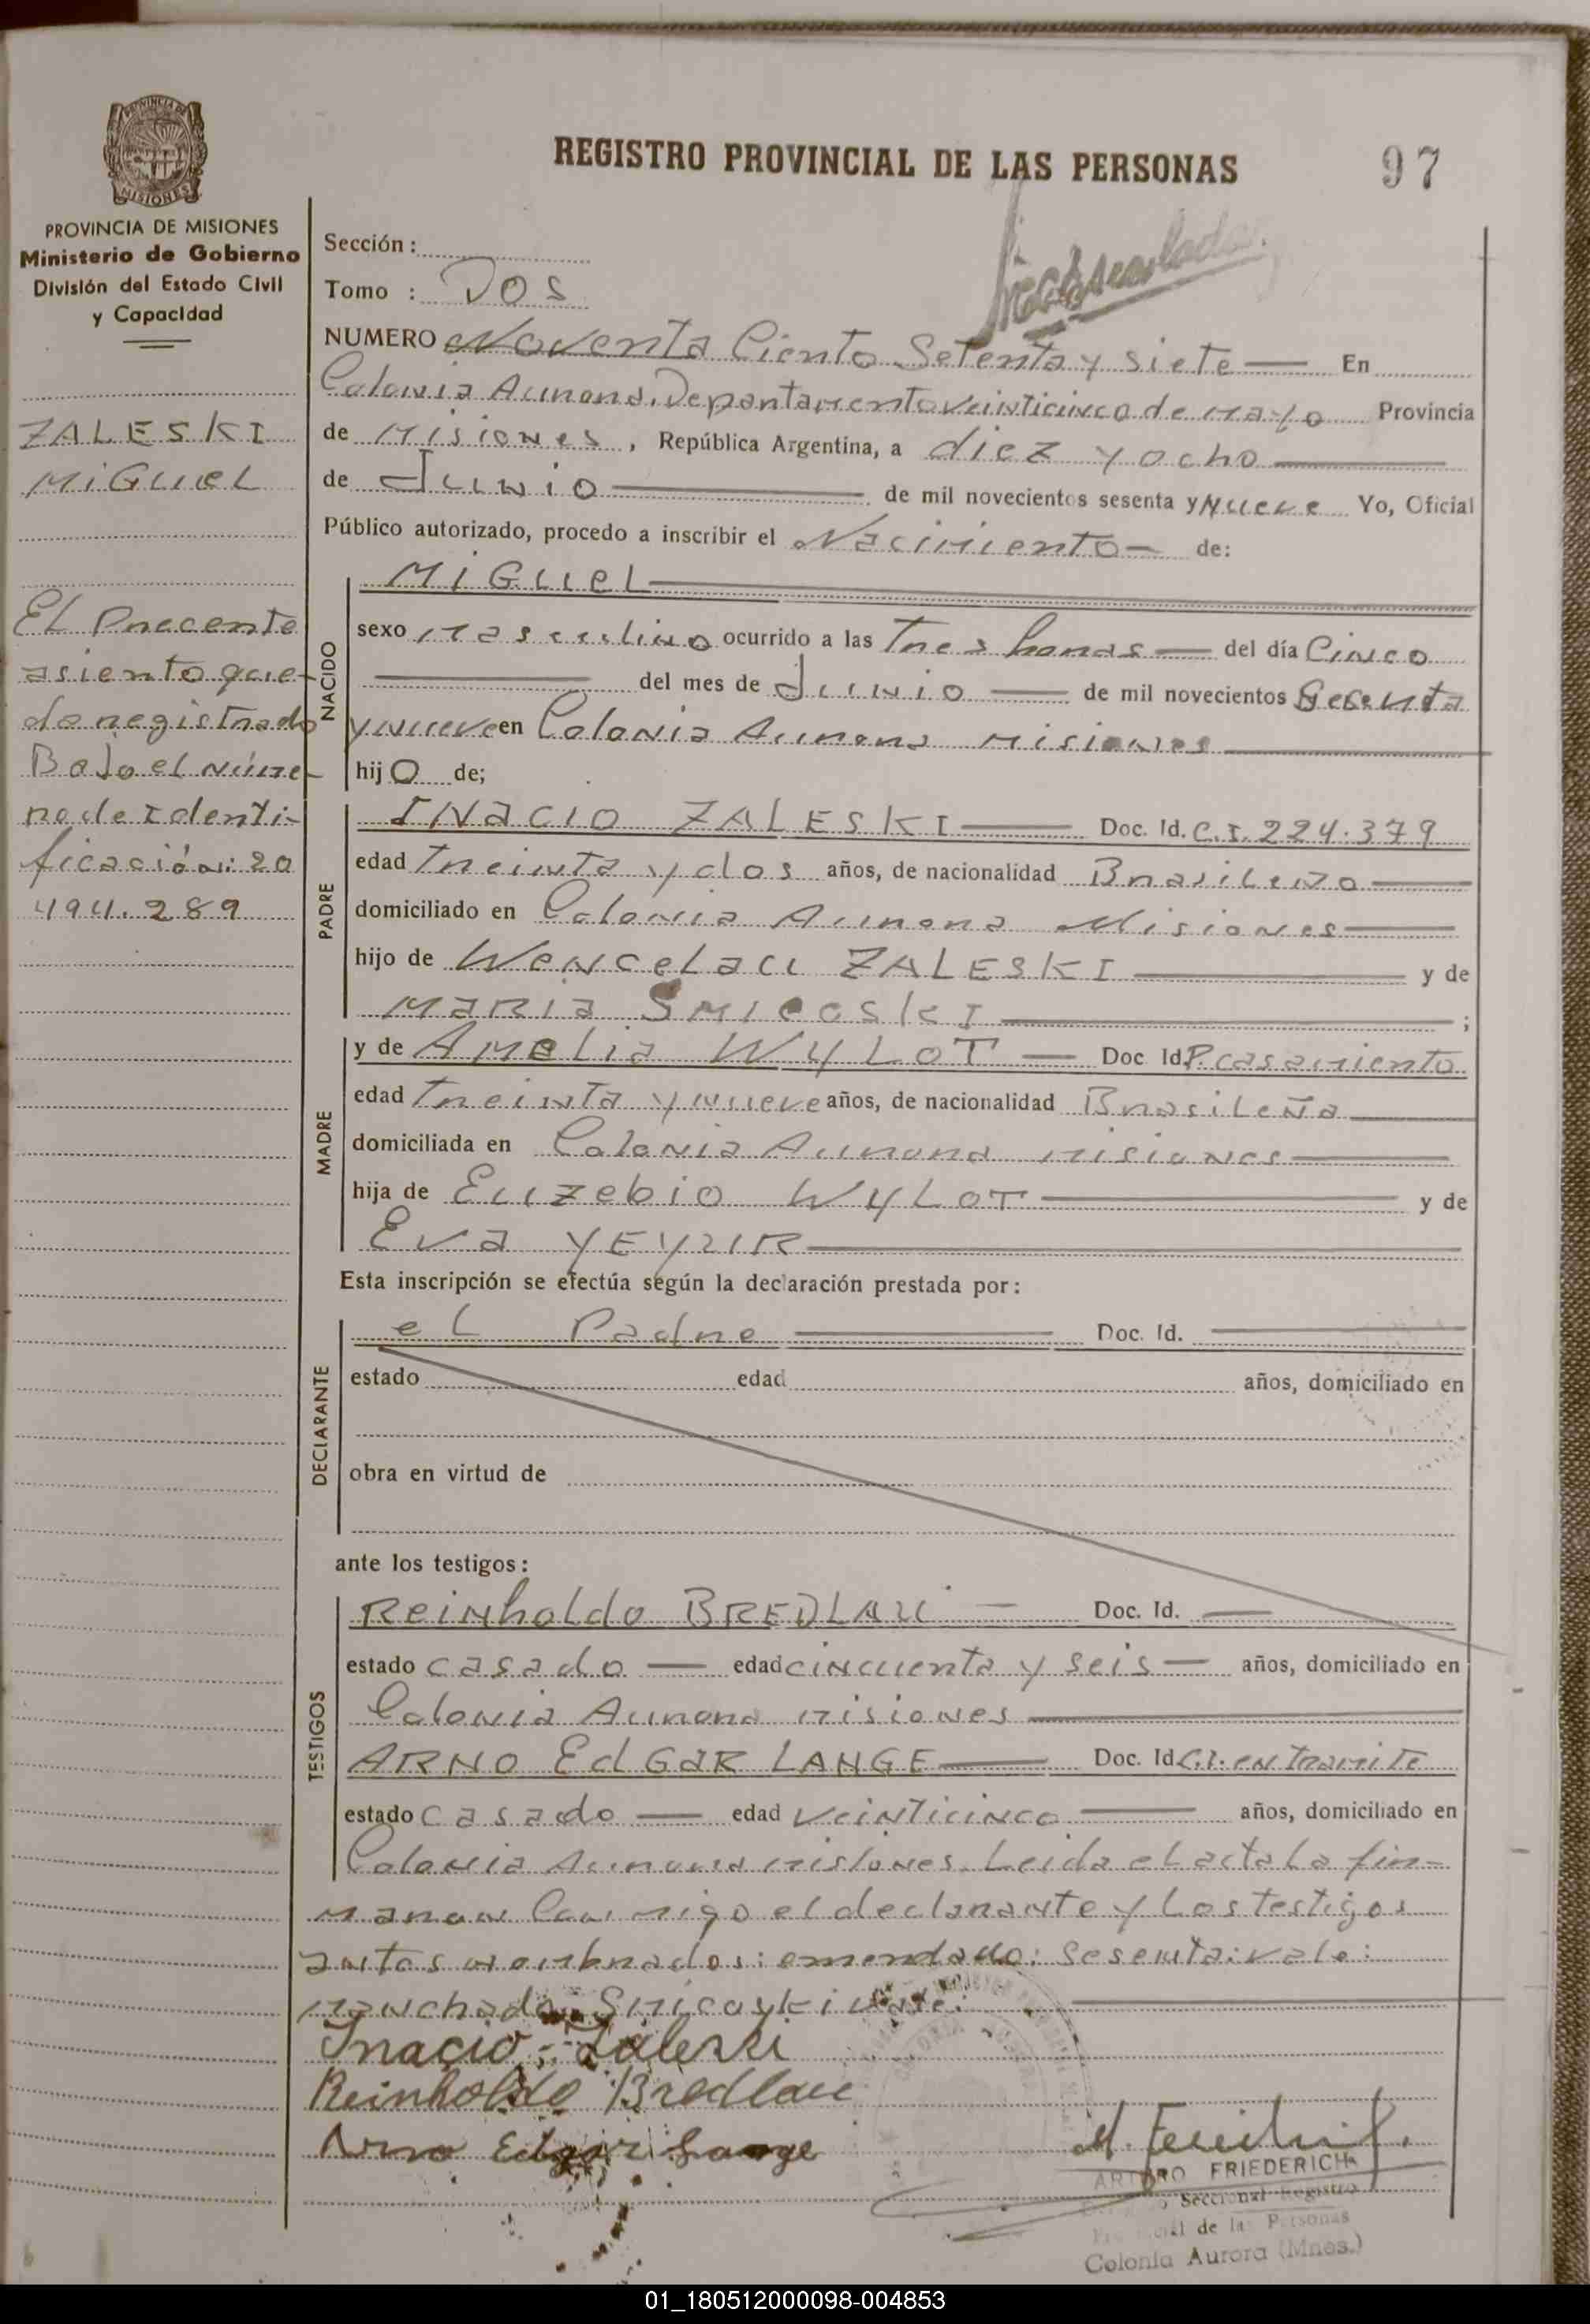 REGISTRO PROVINCIAL DE LAS PERSONAS
97
PROVINCIA DE MISIONES
Ministerio de Gobierno
División del Estado Civil
y Capacidad
ZALESKI
MIGUEL
El Precente
asiento que-
da registrado
Bajo el núme-
ro de Identi-
ficación: 20
494.289
Sección :
Tomo : DOS
NUMERO Noventa Ciento Setenta y siete — En
Colonia Aurora. Departamento veinticinco de mayo Provincia
de Misiones , República Argentina, a diez y ocho
de Junio de mil novecientos sesenta y Nueve Yo, Oficial
Público autorizado, procedo a inscribir el Nacimiento — de:
NACIDO
MIGUEL
sexo masculino ocurrido a las Tres horas — del día Cinco
del mes de Junio — de mil novecientos Sesenta
y nueve en Colonia Aurora Misiones
hijo de;
PADRE
INACIO ZALESKI — Doc. Id. C.I. 224.379
edad Treinta y dos años, de nacionalidad Brasileño
domiciliado en Colonia Aurora Misiones
hijo de Wencelau ZALESKI y de
MARIA SMICOSKI ;
MADRE
y de Amelia WYLOT — Doc Id P. casamiento
edad Treinta y nueve años, de nacionalidad Brasileña
domiciliada en Colonia Aurora misiones
hija de Euzebio WYLOT y de
Eva
Esta inscripción se efectúa según la declaración prestada por:
DECLARANTE
el Padre Doc. Id.
estado edad años, domiciliado en
obra en virtud de
ante los testigos:
TESTIGOS
Reinholdo BREDLAU — Doc. Id. —
estado casado — edad cincuenta y seis — años, domiciliado en
Colonia Aurora misiones
ARNO EdGaR LANGE — Doc. Id C.I. en tramite
estado casado — edad veinticinco — años, domiciliado en
Colonia Aurora misiones. Leida el acta La fir-
maran Conmigo el declarante y Los testigos
antes nombrados: emendado: Sesenta: vale:
manchado: Smicoski vale:
Inacio Zaleski
Reinholdo Bredlau
Arno Edgar Lange
ARTURO FRIEDERICH
Seccional Registro
Provincial de las Personas
Colonia Aurora (Mnes.)
01_180512000098-004853